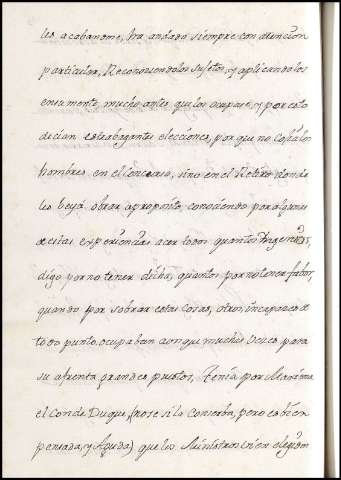 les acabanome, ha andado siempre con atencion
particular, Reconociendo los sujetos, y aplicandolos
en su mente, mucho antes que los ocupase, y por esto
decian estrabagantes elecciones, por que no cojia los
hombres en el Concurso, sino en el Retiro donde
les beya obrar aproposito, conociendo por algunas
de estas experiencias acer todos quantos Ingenios,
digo por no tener dicha, quantos por no tener fabor,
quando por sobrar estas cosas, otros incapaces de
todo punto, ocupaban aunque muchas veces para
su afrenta grandes puestos, Tenia por Maxima
el Conde Duque, (no se si lo conserba, pero es bien
pensada, y Aguda) que los Ministros en elegidos